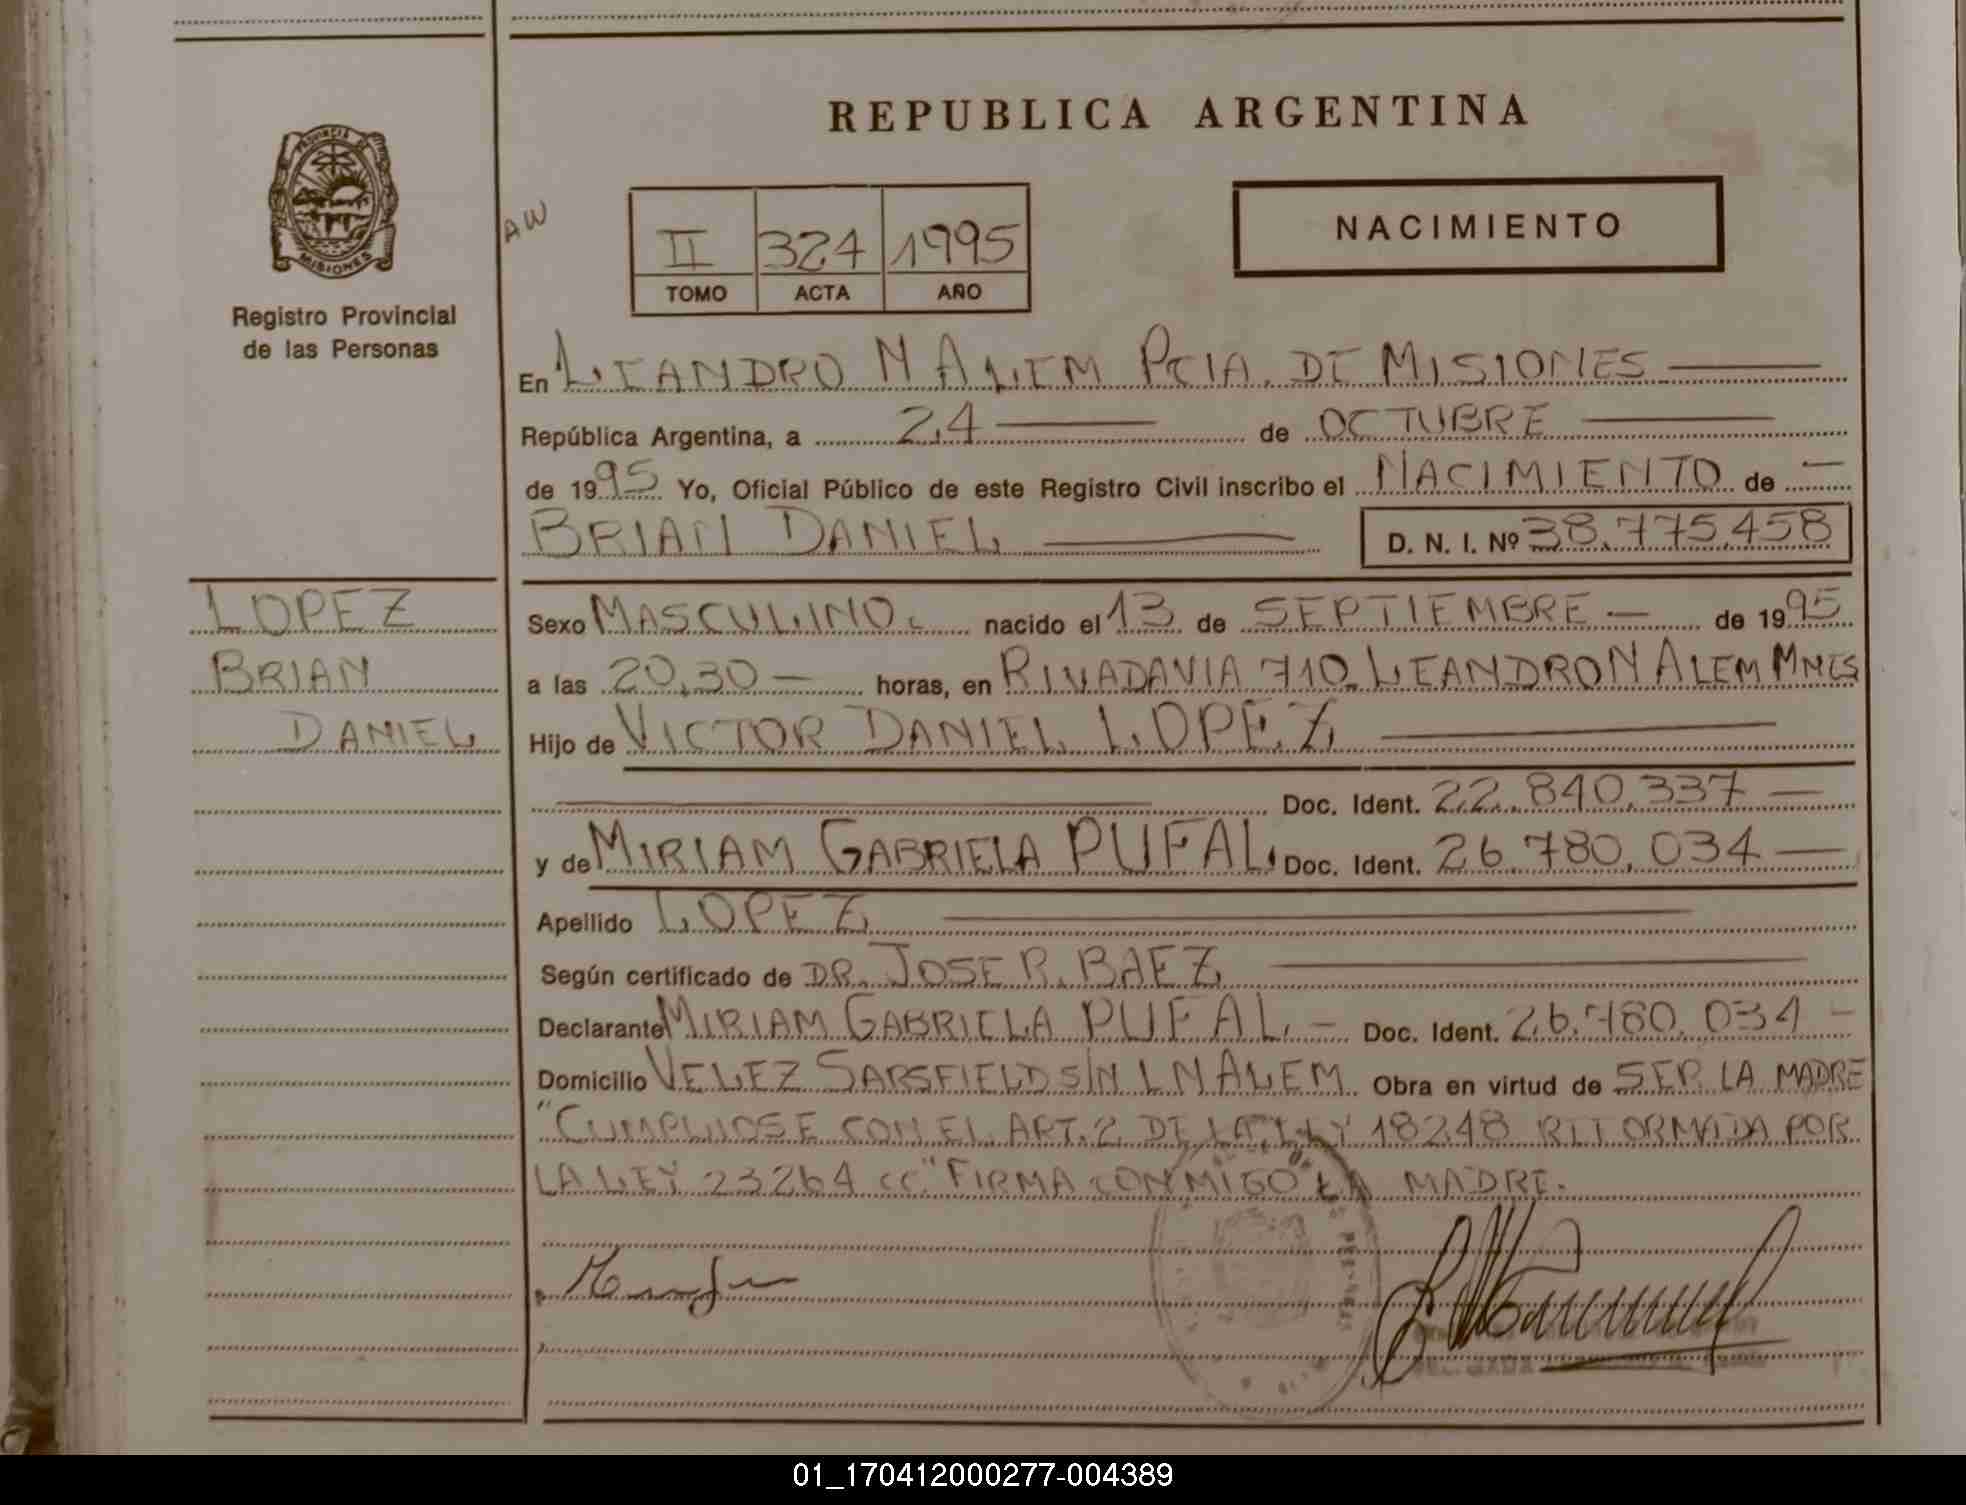 REPUBLICA ARGENTINA
PROVINCIA DE
MISIONES
Registro Provincial
de las Personas
AW
II 324 1995
TOMO ACTA AÑO
NACIMIENTO
En LEANDRO N ALEM PCIA. DE MISIONES
República Argentina, a 24 de OCTUBRE
de 1995 Yo, Oficial Público de este Registro Civil inscribo el NACIMIENTO de
BRIAN DANIEL D. N. I. Nº 38.775.458
LOPEZ
BRIAN
DANIEL
Sexo MASCULINO. nacido el 13 de SEPTIEMBRE de 1995
a las 20,30 horas, en RIVADAVIA 710 LEANDRO N ALEM MNES
Hijo de VICTOR DANIEL LOPEZ
Doc. Ident. 22.840.337
y de MIRIAM GABRIELA PUFAL. Doc. Ident. 26.780.034
Apellido LOPEZ
Según certificado de DR. JOSE R. BAEZ
Declarante MIRIAM GABRIELA PUFAL. Doc. Ident. 26.780.034
Domicilio VELEZ SARSFIELD S/N L N ALEM Obra en virtud de SER LA MADRE
"CUMPLIOSE CON EL ART. 2 DE LA LEY 18248 REFORMADA POR
LA LEY 23264 CC." FIRMA CONMIGO LA MADRE.
01_170412000277-004389